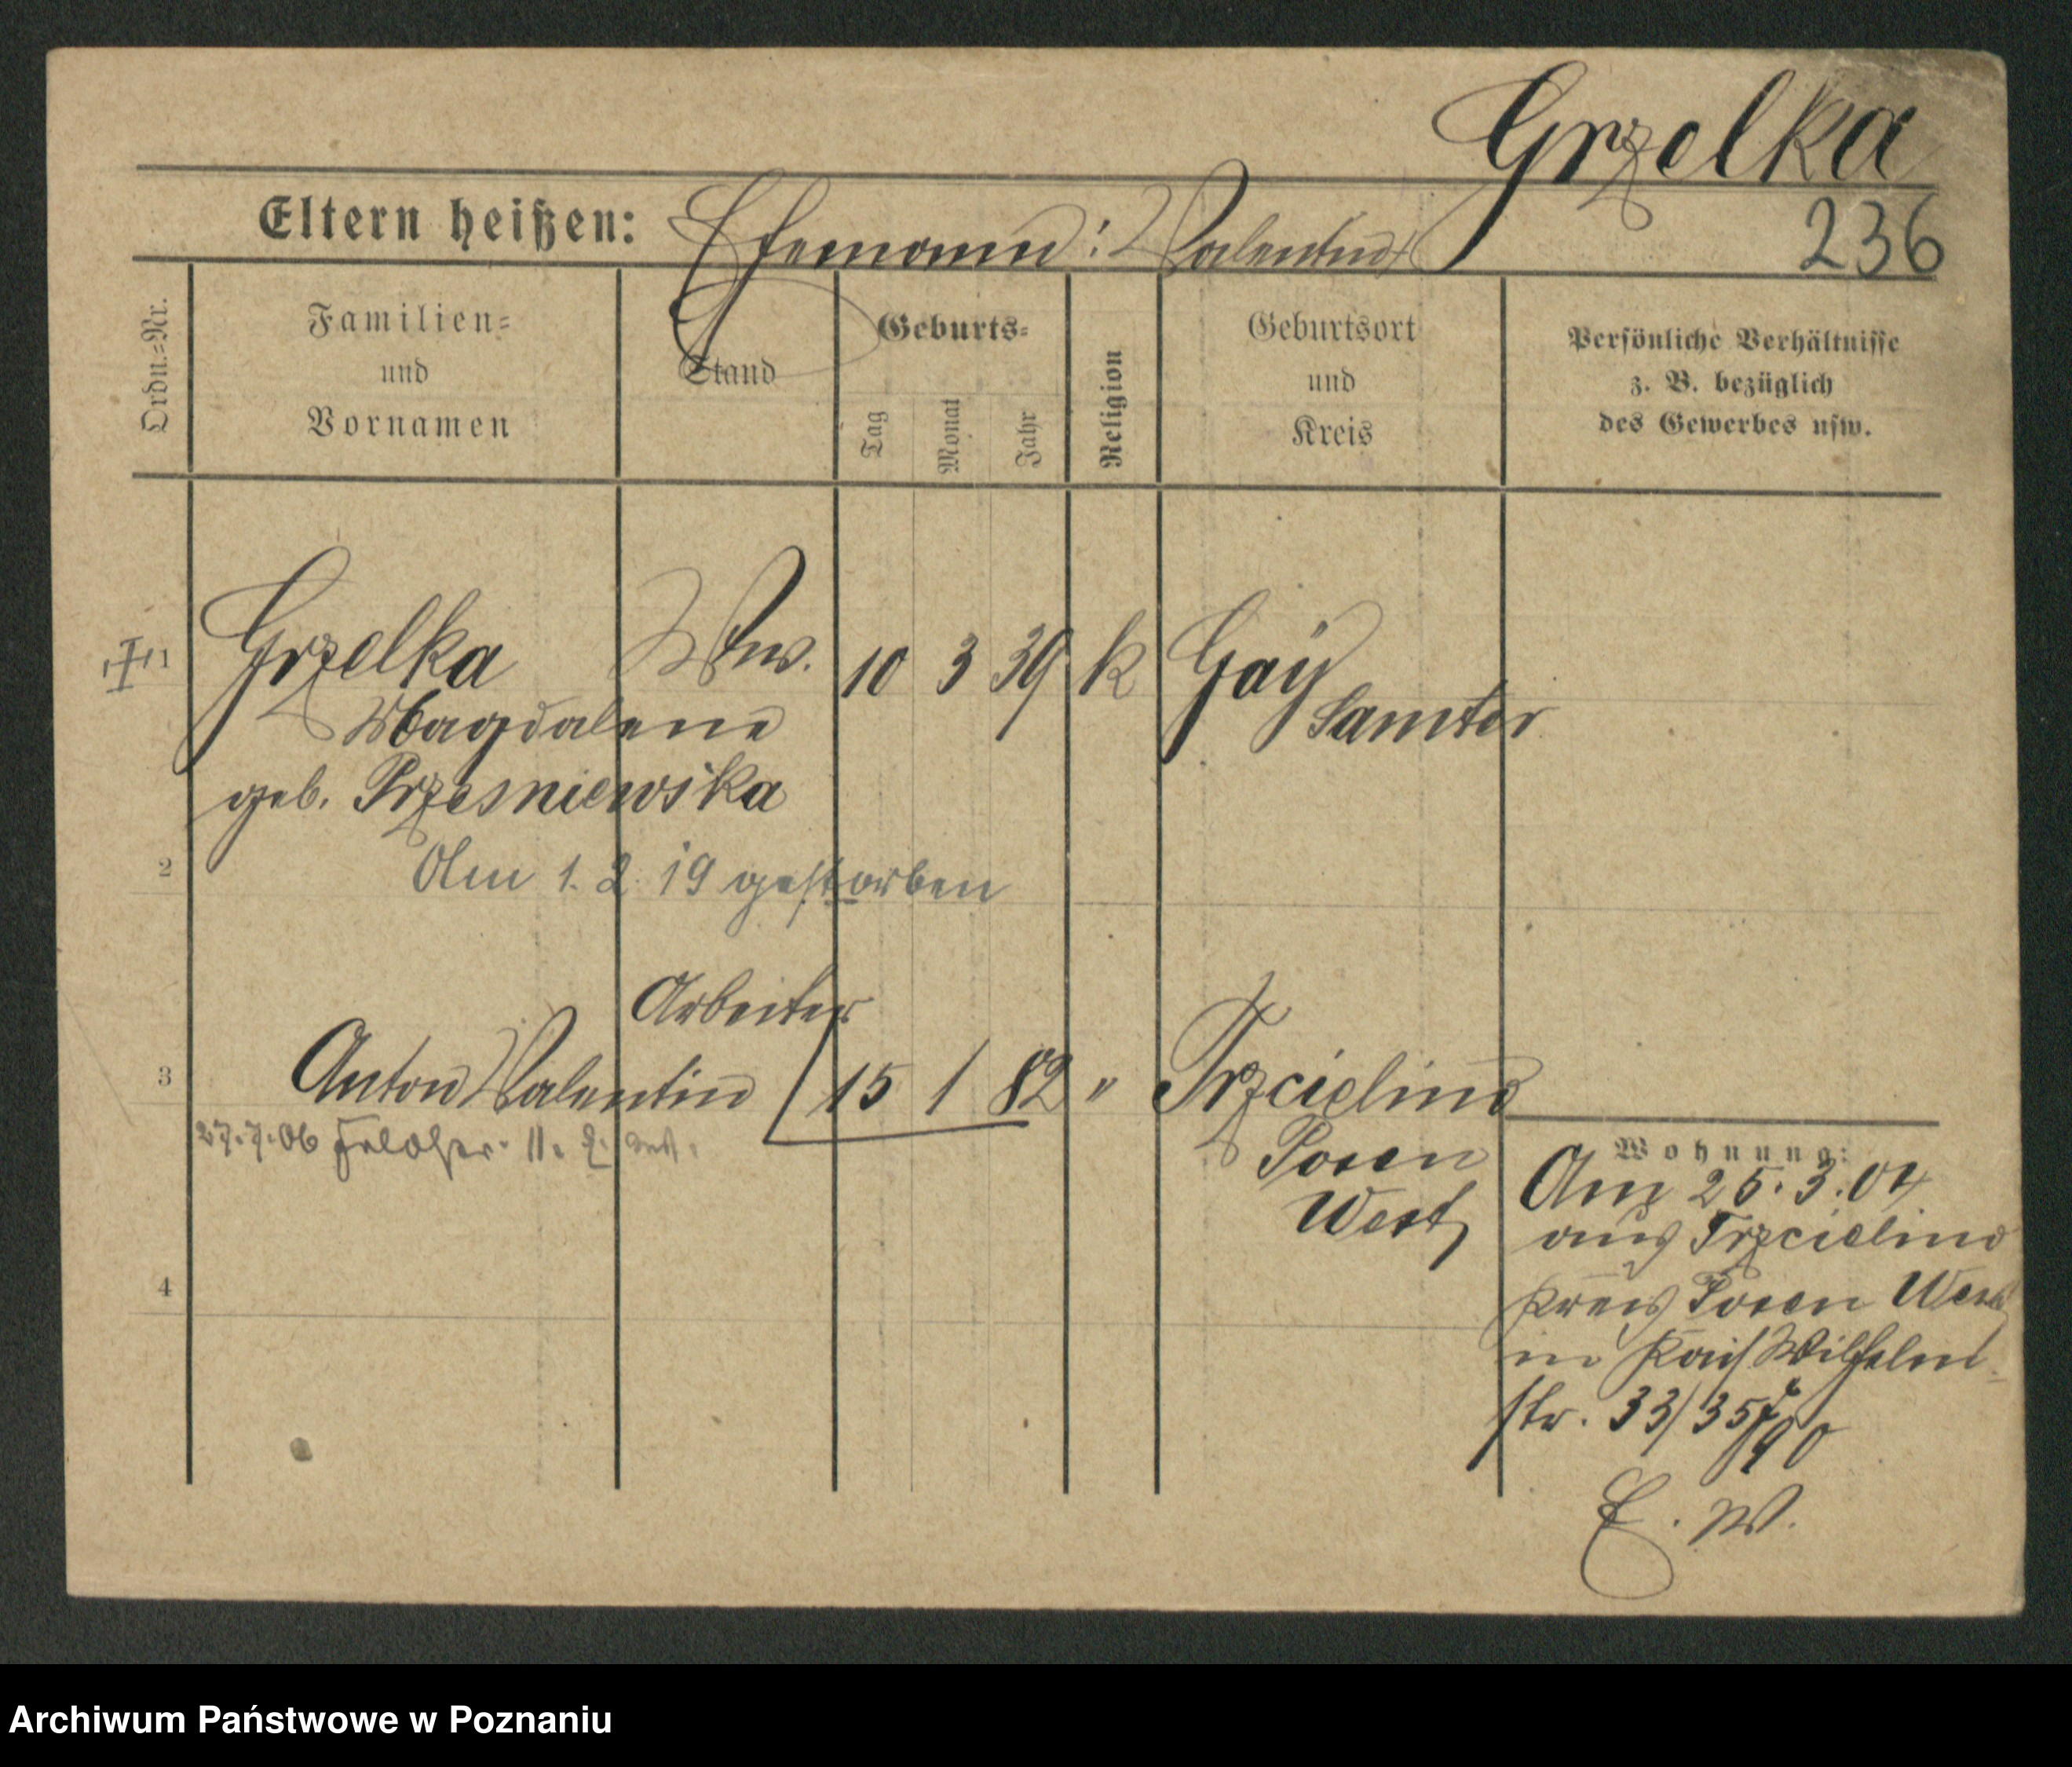 Grzelka
236
Eltern heißen: Ehemann: Valentin †
Ordn.=Nr.
Familien=
und
Vornamen
Stand
Geburts=
Tag
Monat
Jahr
Religion
Geburtsort
und
Kreis
Persönliche Verhältnisse
z. B. bezüglich
des Gewerbes usw.
1 Grzelka Ww. 10 3 39 k Gay
Magdalene Samter
geb. Przesniewska
2 Am 1. 2. 19 gestorben
Arbeiter
3 Anton Valentin 15 1 82 " Trzcielino
27.7.06 11. 2.
Posen
West
4
Wohnung:
Am 25.3.04
aus Trzcielino
Kreis Posen West
in Kais Wilhelm-
str. 33/35
E. W.
Archiwum Państwowe w Poznaniu